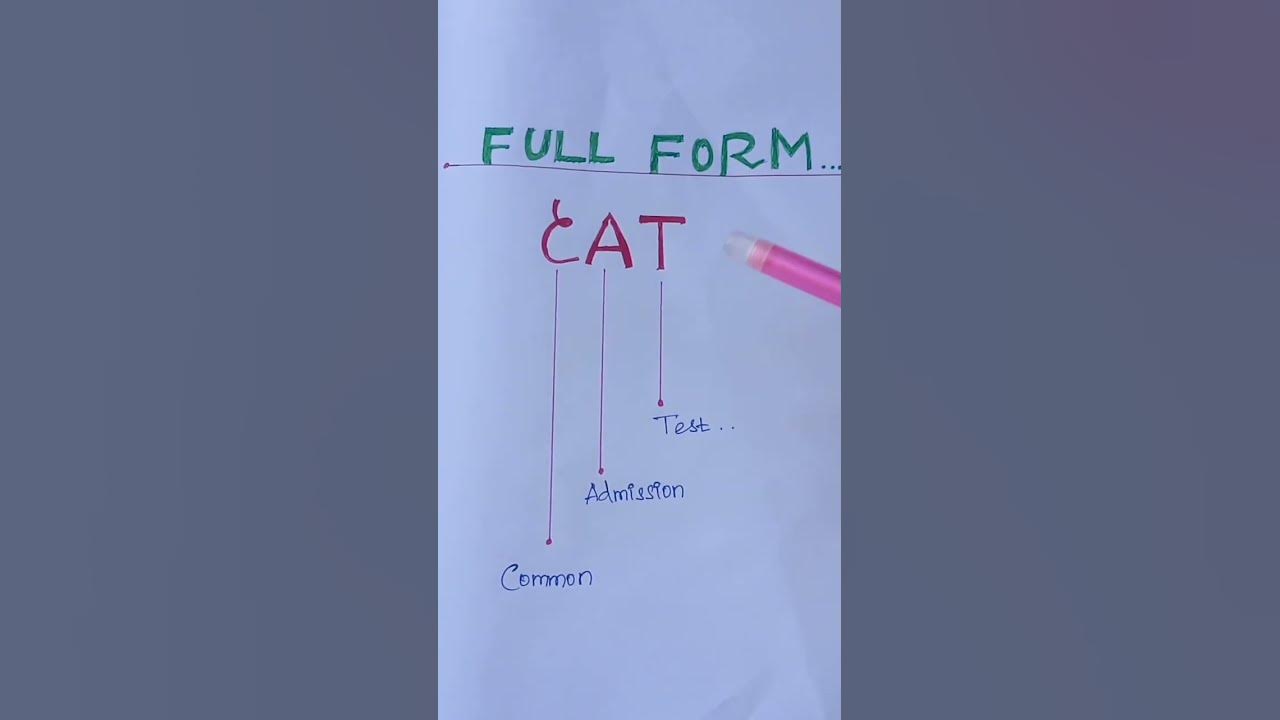 FULL FORM...
CAT
Test..
Admission
Common